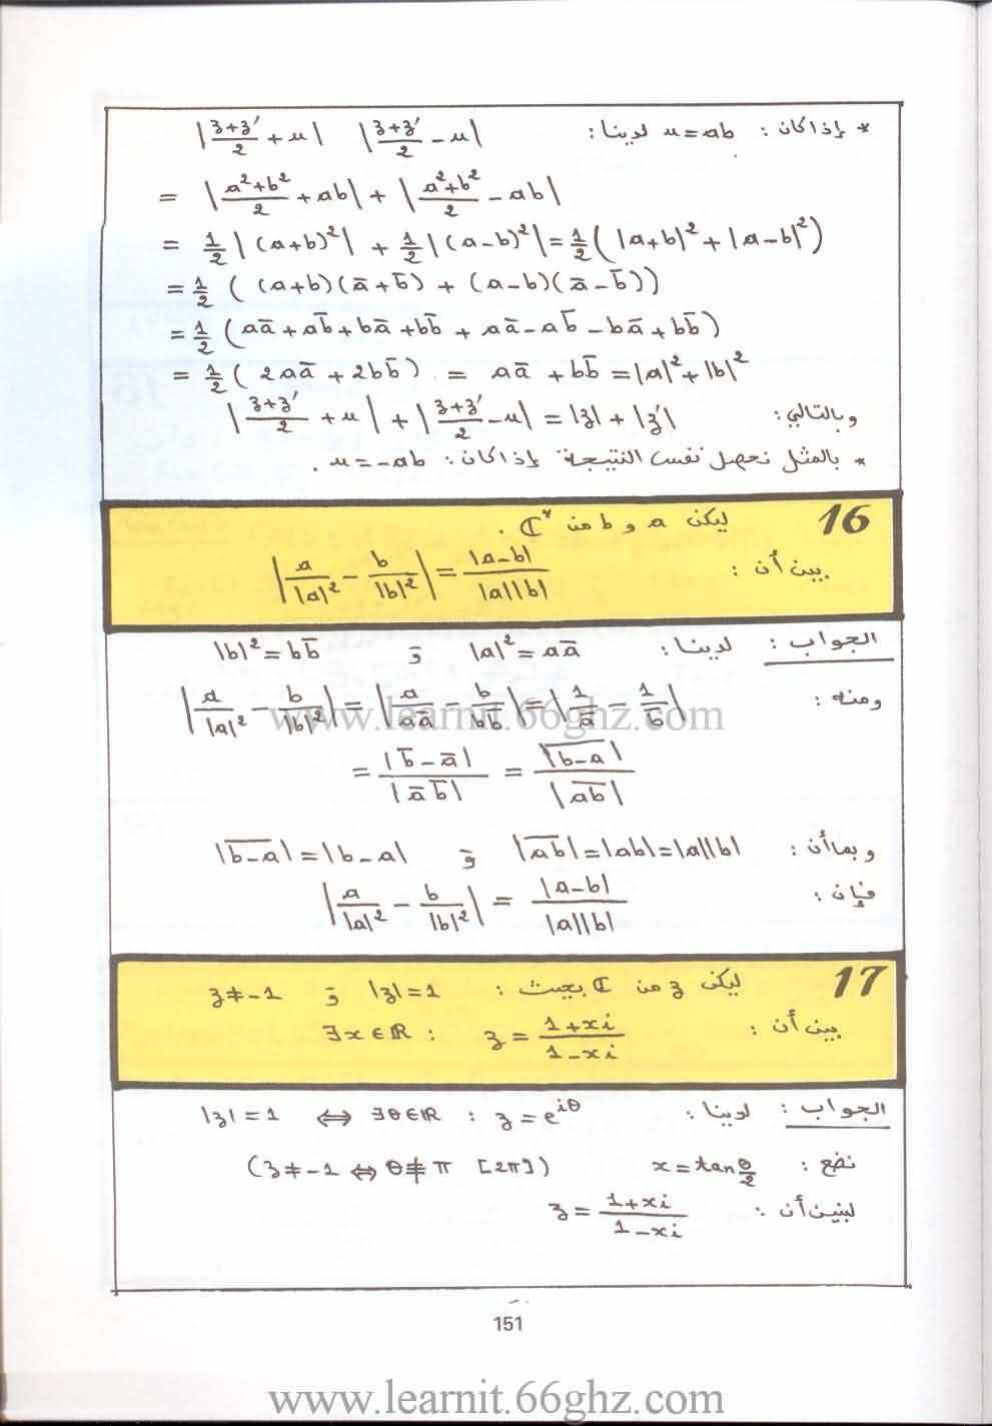 * إذا كان : u = ab لدينا : |(z+z')/2 + u| |(z+z')/2 - u|
= |(a²+b²)/2 + ab| + |(a²+b²)/2 - ab|
= 1/2 |(a+b)²| + 1/2 |(a-b)²| = 1/2 ( |a+b|² + |a-b|²)
= 1/2 ( (a+b)(ā+b̄) + (a-b)(ā-b̄))
= 1/2 (aā + ab̄ + bā + bb̄ + aā - ab̄ - bā + bb̄)
= 1/2 ( 2aā + 2bb̄) = aā + bb̄ = |a|² + |b|²
وبالتالي : |(z+z')/2 + u| + |(z+z')/2 - u| = |z| + |z'|
* بالمثل نحصل نفس النتيجة إذا كان : u = -ab .
16 ليكن a و b من ℂ* .
بين أن : |a/|a|² - b/|b|²| = |a-b|/|a||b|
الجواب : لدينا : |a|² = aā و |b|² = bb̄
ومنه : |a/|a|² - b/|b|²| = |a/aā - b/bb̄| = |1/ā - 1/b̄|
= |b̄ - ā|/|ā b̄| = |\overline{b-a}|/|\overline{ab}|
وبما أن : |\overline{ab}| = |ab| = |a||b| و |\overline{b-a}| = |b-a|
فإن : |a/|a|² - b/|b|²| = |a-b|/|a||b|
17 ليكن z من ℂ بحيث : |z| = 1 و z ≠ -1
بين أن : ∃x ∈ ℝ : z = (1+xi)/(1-xi)
الجواب : لدينا : |z| = 1 ⇔ ∃θ∈ℝ : z = e^{iθ}
نضع : x = tan θ/2 (z ≠ -1 ⇔ θ ≢ π [2π])
لنبين أن : z = (1+xi)/(1-xi)
151
www.learnit.66ghz.com
www.learnit.66ghz.com